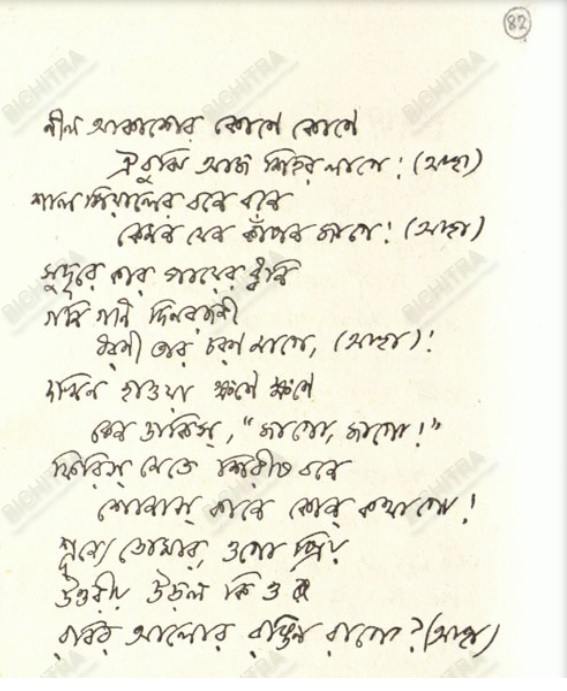 ৪২
নীল আকাশের কোণে কোণে
ঐ বুঝি আজ শিহর লাগে! (আহা)
শাল পিয়ালের বনে বনে
কেমন যেন কাঁপন জাগে! (আহা)
সুদূরে কার পায়ের ধ্বনি
গনি গনি দিনরজনী
ধরণী তার চরণ মাগে, (আহা)!
দখিন হাওয়া ক্ষণে ক্ষণে
কেন ডাকিস্, "জাগো, জাগো!"
ফিরিস্ মেতে শিরীষ বনে
শোনাস্ কানে কোন্ কথা গো!
শূন্যে তোমার, ওগো প্রিয়
উত্তরীয় উড়ল কি ও
রবির আলোর রঙিন রাগে? (আহা)
BICHITRA